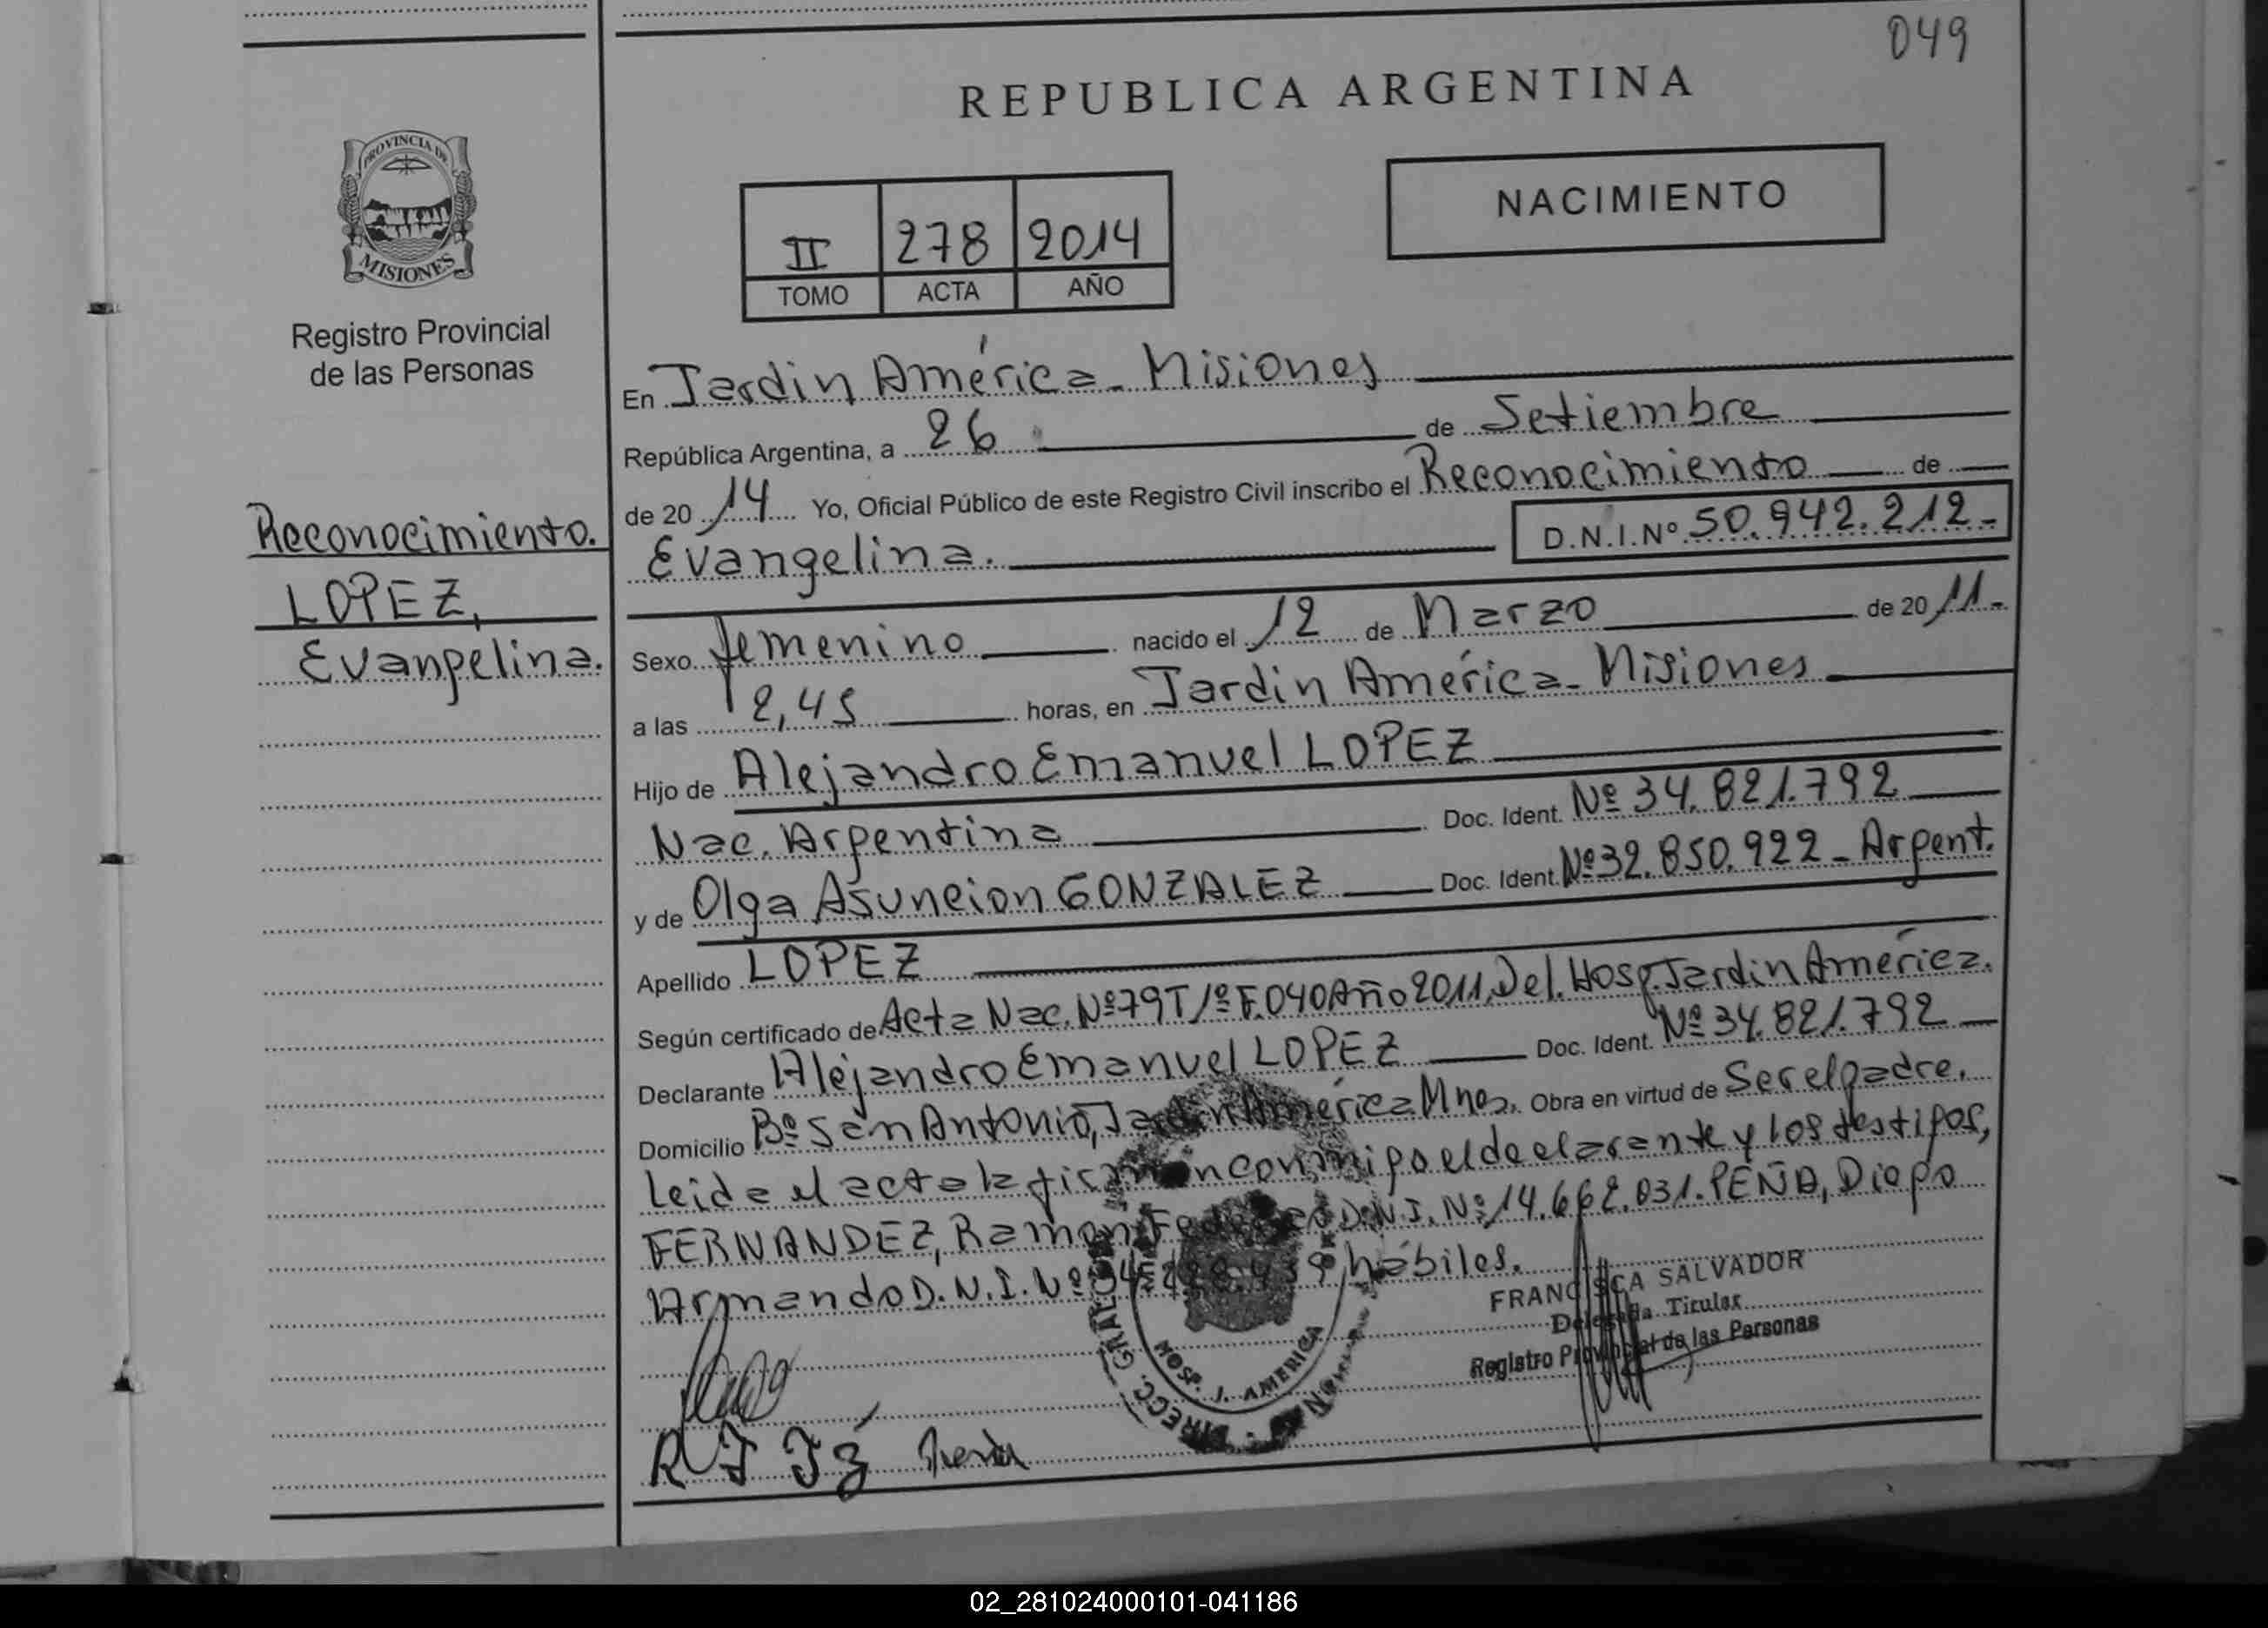 049
REPUBLICA ARGENTINA
PROVINCIA DE
MISIONES
Registro Provincial
de las Personas
NACIMIENTO
II 278 2014
TOMO ACTA AÑO
Reconocimiento.
LOPEZ,
Evangelina.
En Jardin América - Misiones
República Argentina, a 26 de Setiembre
de 20 14 Yo, Oficial Público de este Registro Civil inscribo el Reconocimiento de
Evangelina. D.N.I.Nº 50.942.212-
Sexo femenino nacido el 12 de Marzo de 20 11-
a las 2,45 horas, en Jardin América - Misiones
Hijo de Alejandro Emanuel LOPEZ
Nac. Argentina Doc. Ident. Nº 34.821.792
y de Olga Asuncion GONZALEZ Doc. Ident. Nº 32.850.922 - Argent.
Apellido LOPEZ
Según certificado de Acta Nac. Nº 79 T/º F. 040 Año 2011, Del. Hosp. Jardin América.
Declarante Alejandro Emanuel LOPEZ Doc. Ident. Nº 34.821.792
Domicilio Bº San Antonio, Jardin América Mnes. Obra en virtud de Ser el padre.
Leida el acta la firman conmigo el declarante y los testigos,
FERNANDEZ, Ramon D.N.I. Nº 14.662.031. PEÑA, Diego
Armando D.N.I. Nº hábiles.
FRANCISCA SALVADOR
Delegada Titular
Registro Provincial de las Personas
HOSP. J. AMERICA
02_281024000101-041186